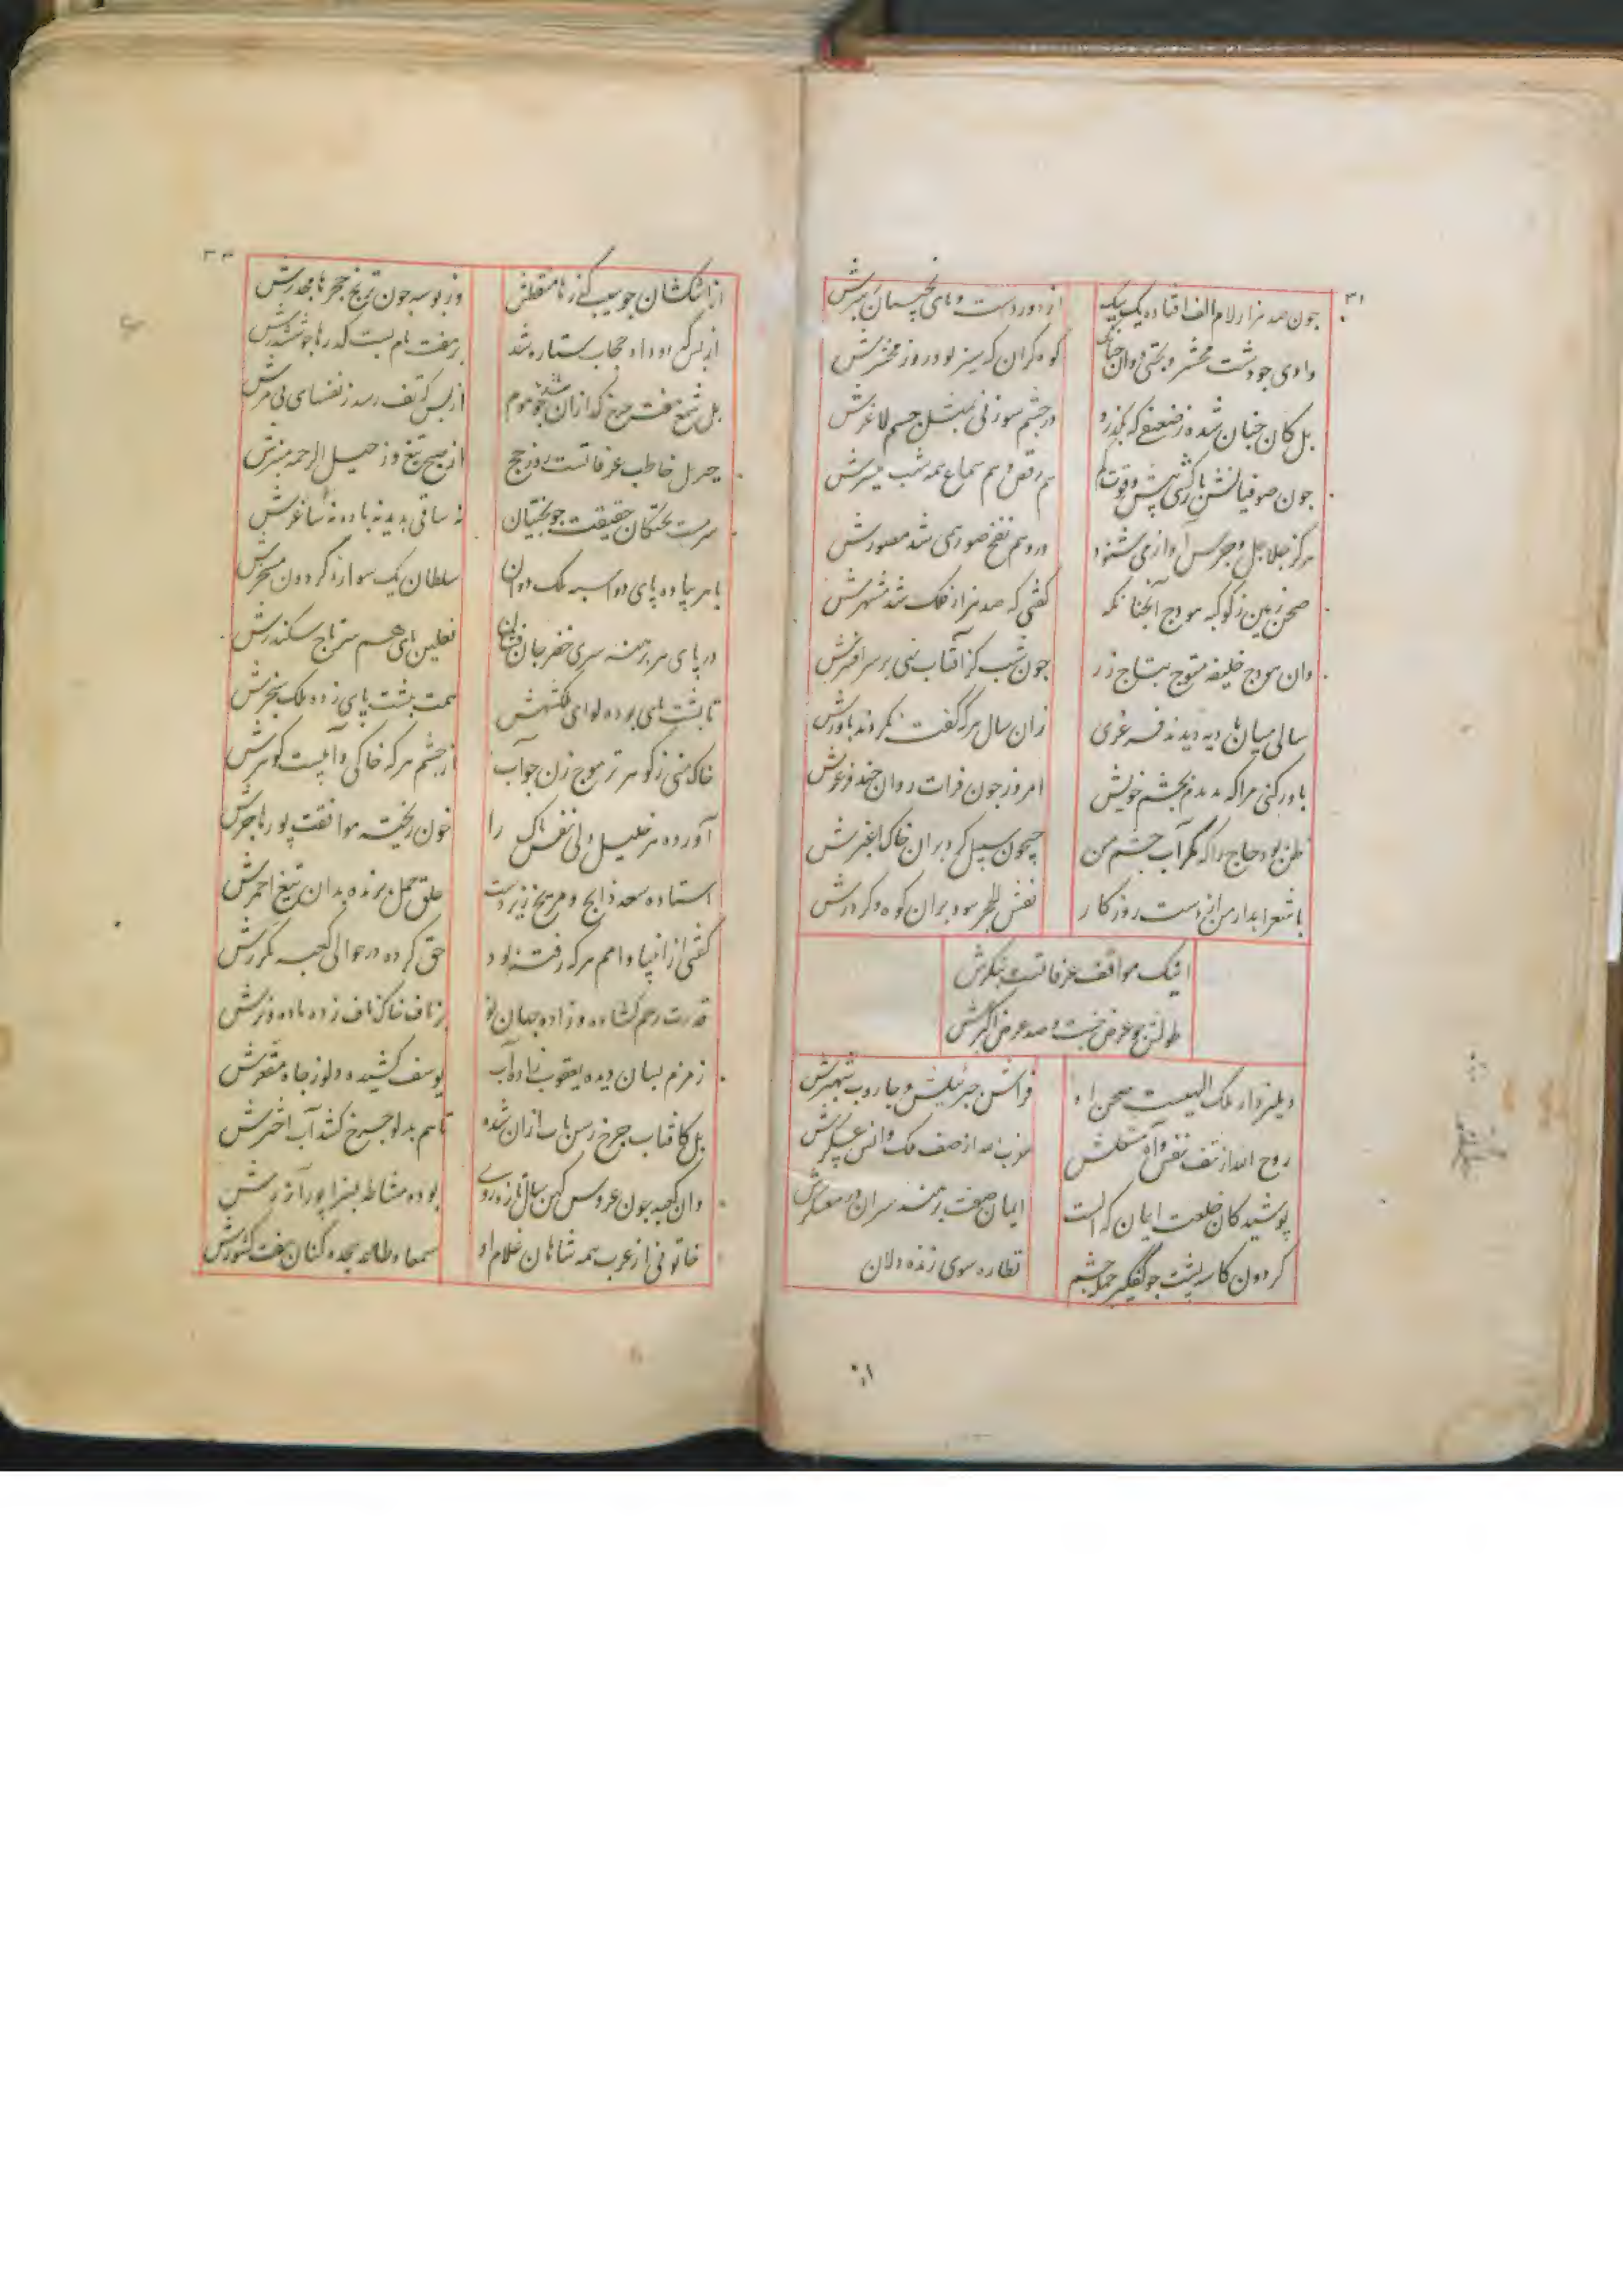 ۳۱
جون صد هزار لام الف افتاده یک بیک از دور دست و پای نجیبان رهبرش
وادی جو دشت محشر و بختی روان جنانک کوه کران که سیر بود روز محشرش
بل کان جنان شده ز ضعیفی که بکذرد در جشم سوزنی بمثل جسم لاغرش
جون صوفیان نشسته پیش وقوت هم رقص و هم سماع همه شب میسرش
هرکز جلاجل و جرس آواز می شنود در وهم نفخ صور همی شد مصورش
صحن زمین ز کوکبه هودج آنجنانکه کفتی که صد هزار فلک شد مشهرش
وان هودج خلیفه متوج بتاج زر جون شب کز آفتاب نهی بر سر افسرش
سالی میان بادیه دیدند فرغری زان سال هرکه گفت نکردند باورش
باور کنی مرا که بدیدم بجشم خویش امروز جون فرات روان جند فرغرش
ظن بود حاج را که مکر آب جشم من جیحون سبیل کرد بران خاک اغبرش
یا شعر ابدار من از دست روزکار نقش الحجر سود بران کوه و کردرش
اینک مواقف عرفاتست بنکرش
طولش جو عرض جنت و صد عرض اکبرش
دهلیز دار ملک الهیست صحن او فراش جبرئیلش و جاروب شهپرش
روح الله از تف نفس و آه مشکلش نوب صد از صف ملک و انس عسکرش
پوشیدکان خلعت ایمان که الست ایمان صفت برهنه سران در معسکرش
کردون کاسه پشت جو کفکیر جمله جشم نظاره سوی زنده دلان
۳۲
از اشکشان جو سیب کذرها منقطش وز بوسه جون ترنج حجرها مجدرش
از بس که دود اه حجاب ستاره شد بر هفت بام بست کذرها جو ششدرش
بل شمع هفت جرخ کدازان شد جو موم از بس که تف رسد ز نفسهای بی مرش
جبریل خاطب عرفاتست روز حج از صبح تیغ و ز جبل الرحمه منبرش
سرمست بختکان حقیقت جو بختیان نه ساقی پدید نه باده نه ساغرش
با هر پیاده پای دو اسبه ملک دوان سلطان یک سواره کردون مسخرش
در پای هر برهنه سری خضر جان فشان نعلین پای هم سر تاج سکندرش
تا پشت پای بوده لوای ملکشهش همت بپشت پای زده ملک سنجرش
خاک منی ز کوهر تر موج زن جو آب از جشم هرکه خاکی و آبیست کوهرش
آورده هر خلیل دلی نفس پاک را خون ریخته موافقت پور هاجرش
استاده سعد ذابح و مریخ زیردست حلق حمل بریده بدان تیغ احمرش
کفتی از انبیا و امم هرکه رفته بود حق کرده در حوالی کعبه مکررش
قدرت رحم کشاده و زاده جهان نو بر ناف خاک ناف زده ماده و نرش
زمزم بسان دیده یعقوب زاده آب یوسف کشیده دلو ز جاه مقعرش
بل کافتاب جرخ رسن تاب ازان شده تا هم بدلو جرخ کشد آب اخترش
وان کعبه جون عروس کهن سال تازه روی بوده مشاطه بسزا پور آزرش
خاتونی از عرب همه شاهان غلام او سمعا و طاعه سجده کنان هفت کشورش